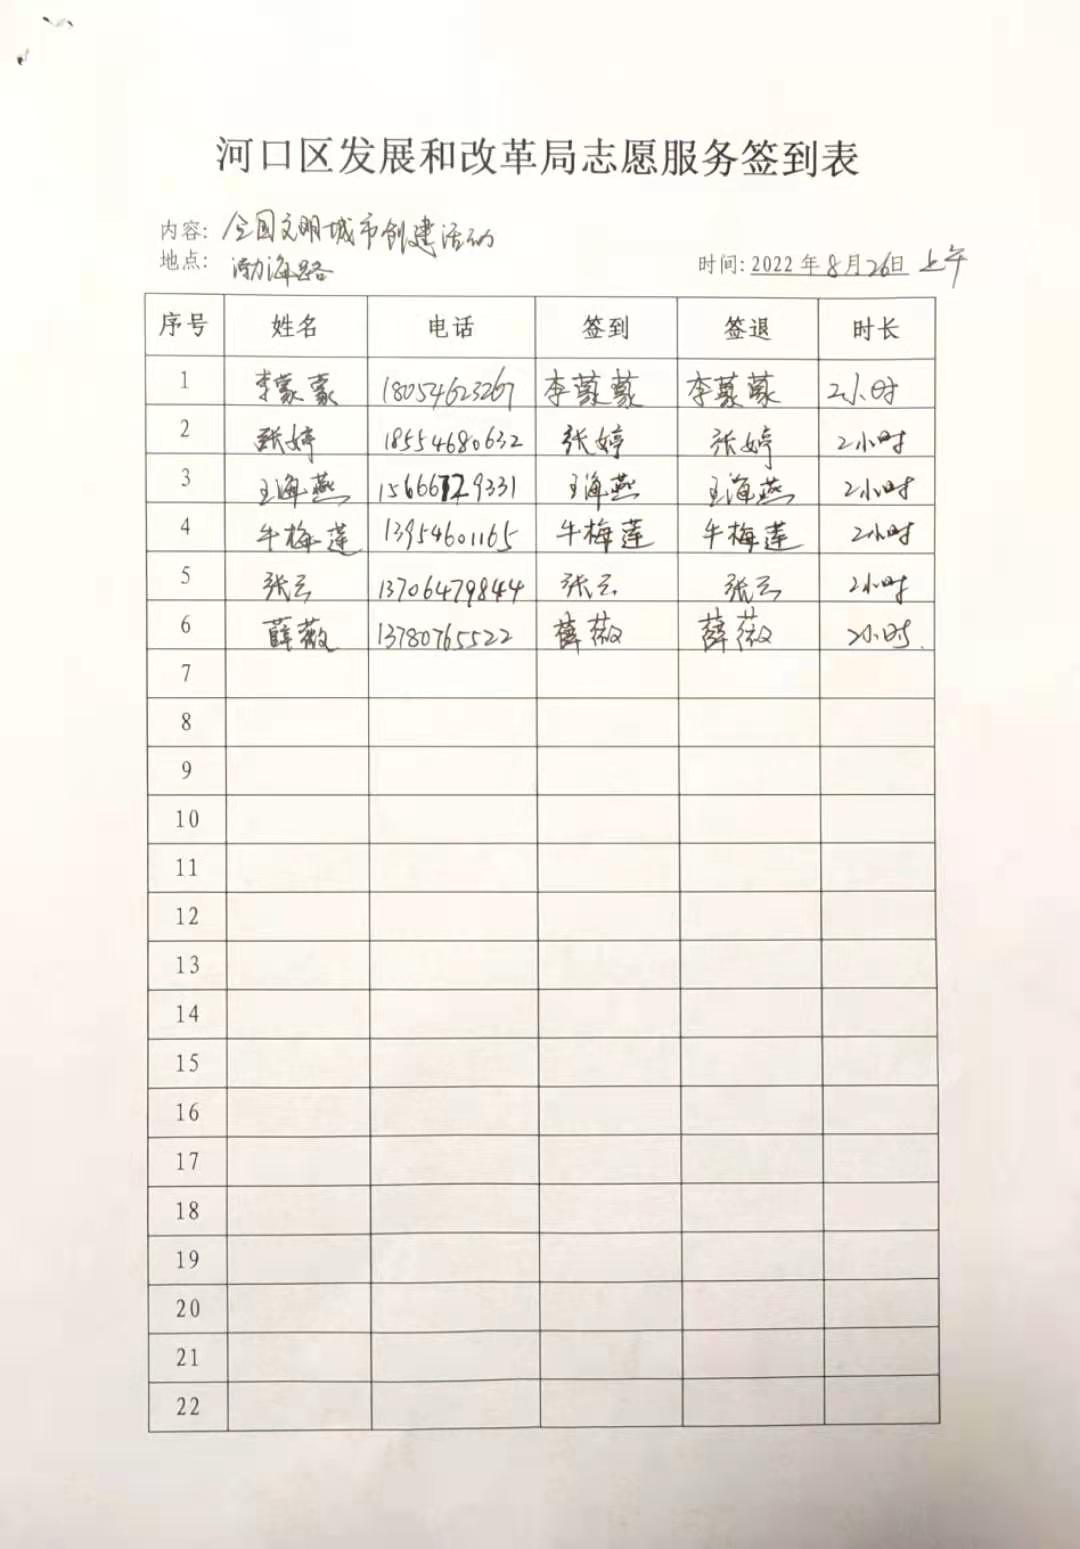 河口区发展和改革局志愿服务签到表
内容: 全国文明城市创建活动
地点: 渤海路
时间: 2022年8月26日 上午
序号 姓名 电话 签到 签退 时长
1 李蒙蒙 18054623267 李蒙蒙 李蒙蒙 2小时
2 张婷 18554680632 张婷 张婷 2小时
3 王海燕 15666729331 王海燕 王海燕 2小时
4 牛梅莲 13954601165 牛梅莲 牛梅莲 2小时
5 张云 13706479844 张云 张云 2小时
6 薛薇 13780765522 薛薇 薛薇 2小时.
7
8
9
10
11
12
13
14
15
16
17
18
19
20
21
22